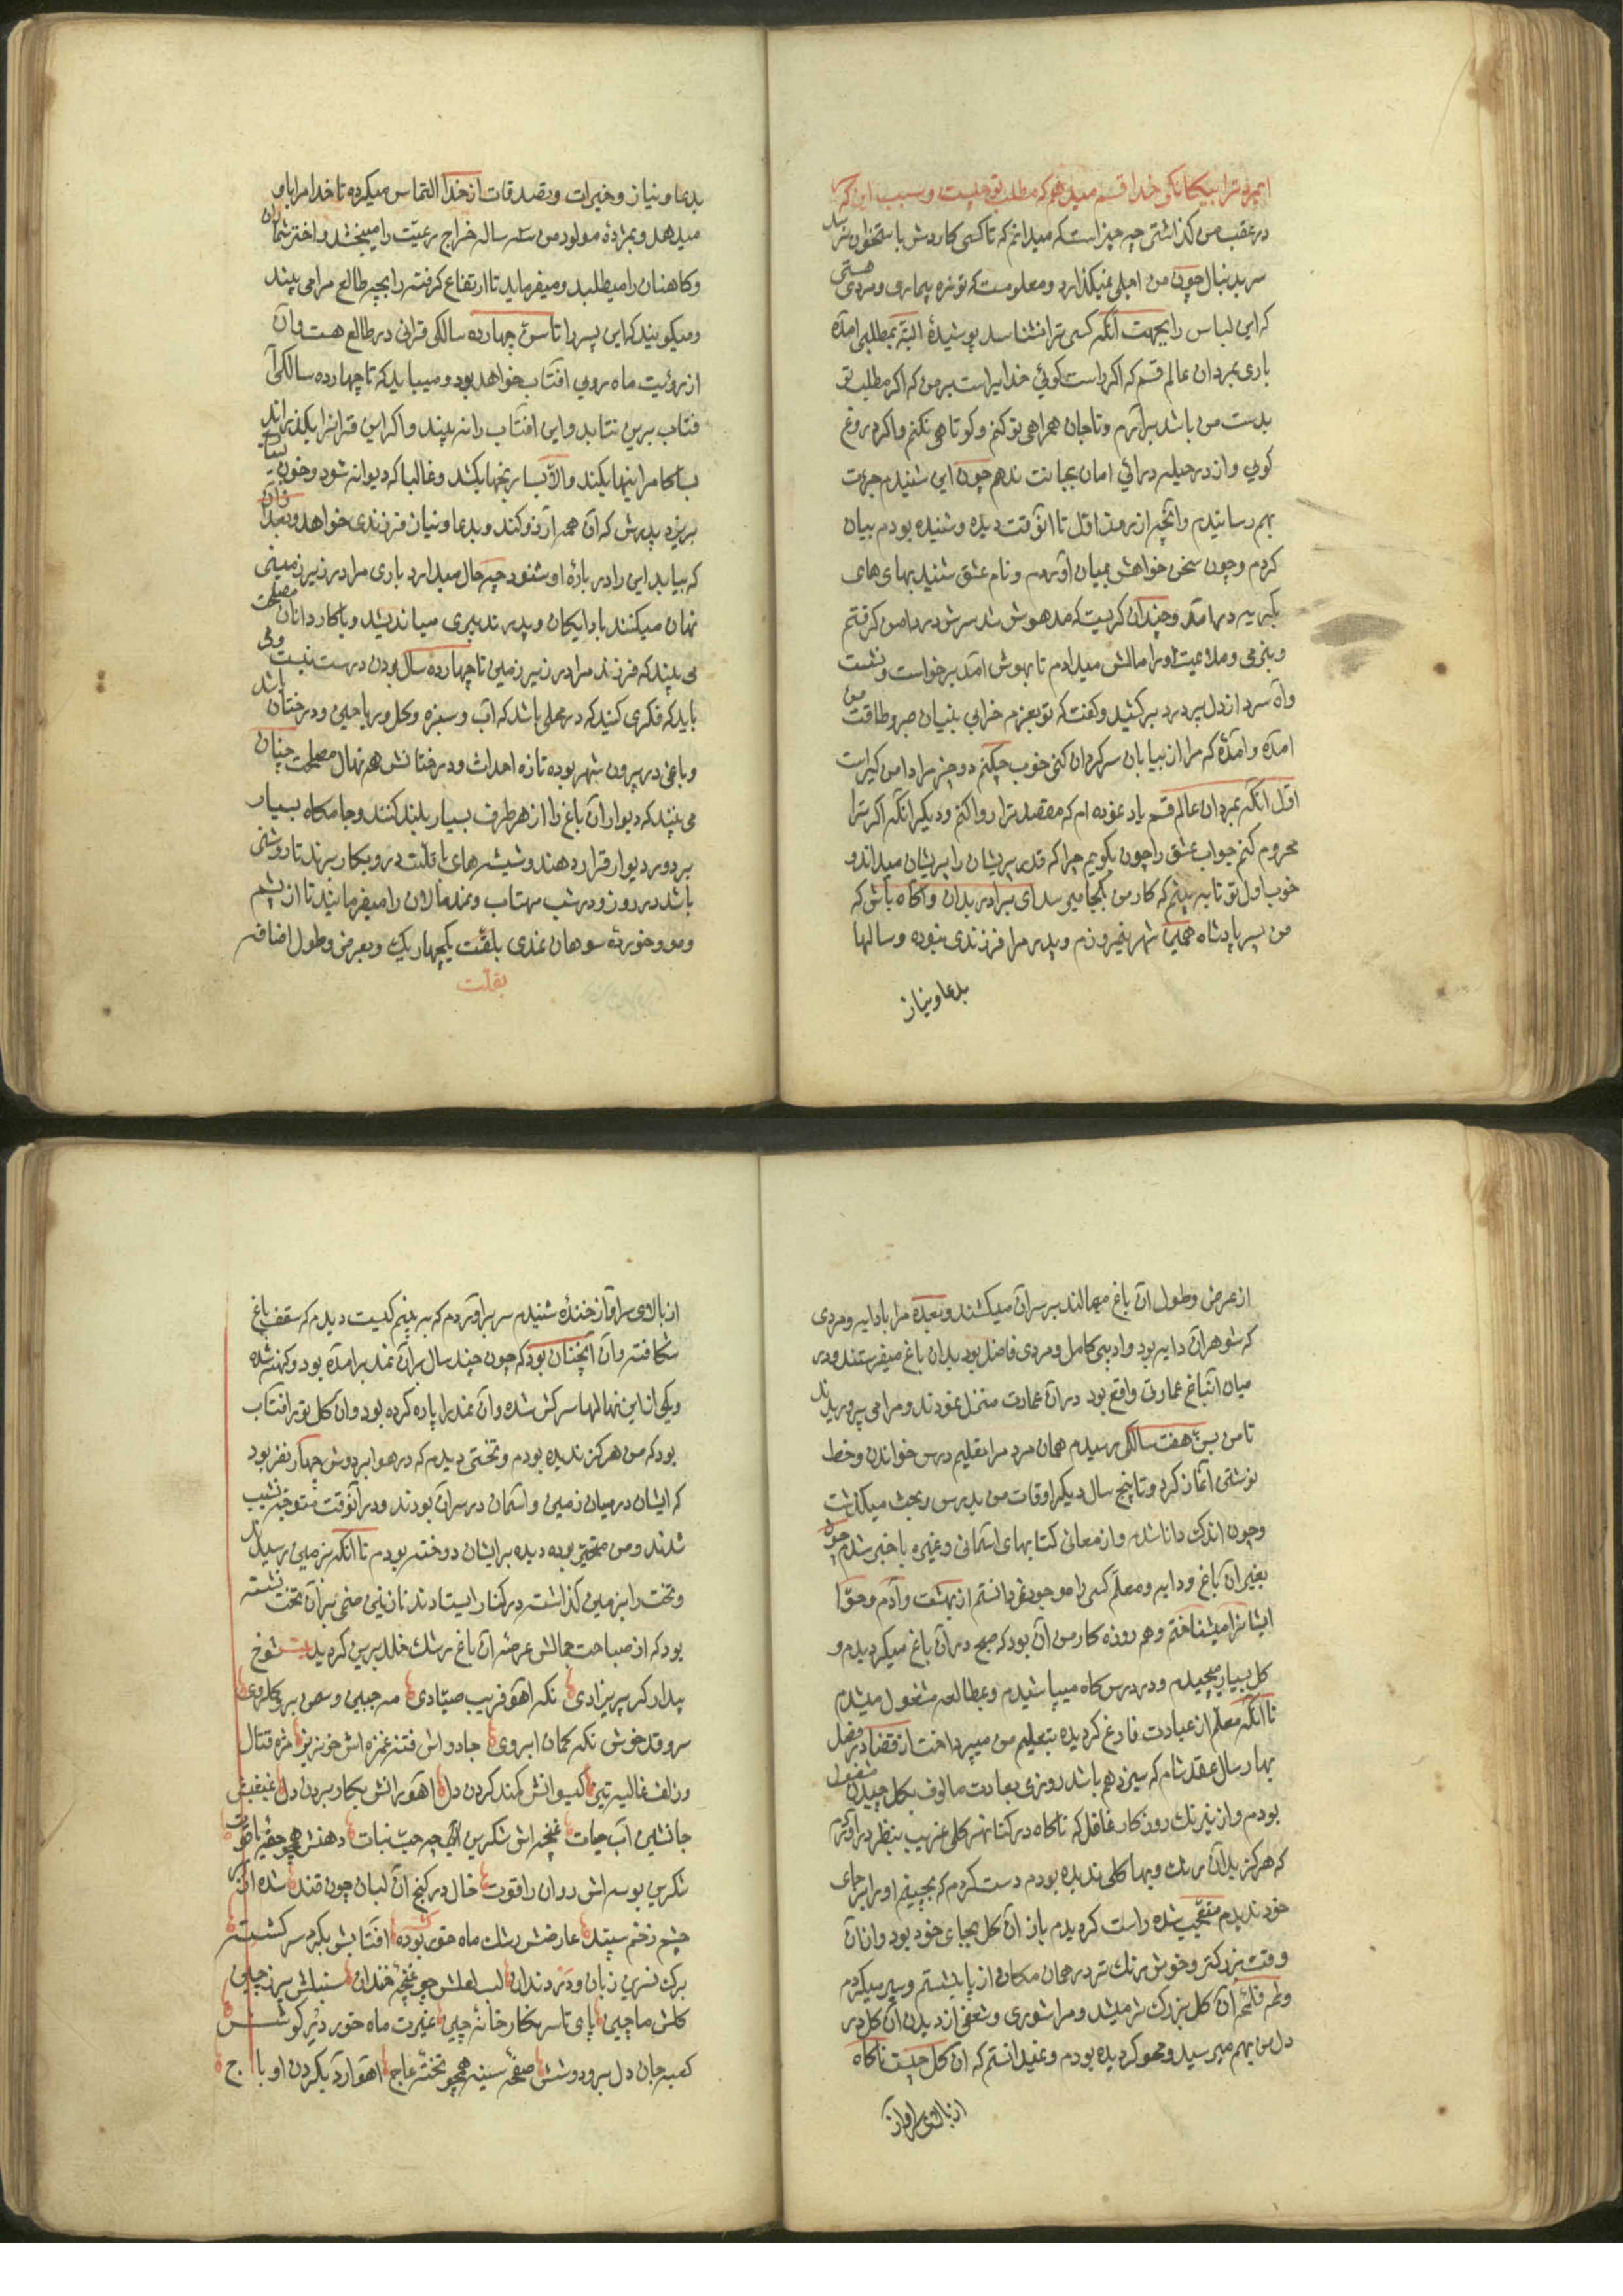 ایمرد ترا بیکانکی خدا قسم میدهم که مطلب تو چیست و سبب این که
در عقب من کذاشتی چه چیز است که میدانم که تا کسی کاردش باستخوان نرسد
سر بدنبال چون من اجلی نمیکذارد و معلومست که تو نره بیماری و مردی هستی
که این لباس را بجهت آنکه کسی ترا نشناسد پوشیدهٔ البته بمطلبی آمدهٔ
باری بمردان عالم قسم که اکر راست کوئی خدایراست بر من که اکر مطلب تو
بدست من باشد برآرم و تا جان همراهی تو کنم و کوتاهی نکنم و اکر دروغ
کویی و از در حیله درائی امان بجانت ندهم چون این شنیدم جرعت
بهم رسانیدم و آنچه از روز اوّل تا آنوقت دیده و شنیده بودم بیان
کردم و چون سخن خواهش بمیان آوردم و نام عشق شنید بهای های
بکریه درآمد و چندان کریست که مدهوش شد سرش در دامن کرفتم
و بنرمی و ملایمت اورا مالش میدادم تا بهوش آمد برخواست و نشست
و آه سرد از دل پر درد برکشید و کفت که تو بعزم خرابی بنیان صبر و طاقت من
آمدهٔ و آمدهٔ که مرا از بیابان سرکردان کنی خوب چکنم دو چیز مرا دامن کیر است
اوّل آنکه بمردان عالم قسم یاد نموده ام که مقصد ترا روا کنم و دیکر آنکه اکر ترا
محروم کنم جواب عشق را چون بکویم چرا که قدر پریشان را پریشان میداند و
خوب اول تو تا ببینم که کار من بکجا میرسد ای برادر بدان و آکاه باش که
من پسر پادشاه همین شهر نیمروزم و پدر مرا فرزندی نبوده و سالها
بدعا و نیاز
بدعا و نیاز و خیرات و تصدقات از خدا التماس میکرده تا خدا مرا باو
میدهد و بمژدهٔ مولود من سه ساله خراج رعیّت را میبخشد و اخترشماران
و کاهنان را میطلبد و میفرماید تا ارتفاع کرفته زایچه طالع مرا می بینند
و میکویند که این پسر را تا سنّ چهارده سالکی قرانی در طالع هست و آن
از رؤیت ماه روی آفتاب خواهد بود و میباید که تا چهارده سالکی آ
فتاب برین نتابد و این آفتاب را نه بیند و اکر این قرانرا بکذراند
بسا کامرانیها بکند و الّا بسا رنجها بکشد و غالبا که دیوانه شود و خون بسیار
بریزد پدرش که آن همه آرزو کند و بدعا و نیاز فرزندی خواهد و بعد از آن
که بیابد این را در بارهٔ او شنود چه حال میدارد باری مرا در زیر زمینی
نهان میکنند با دایکان و پدر تدبیری میاندیشد و با کاردانان مصلحت
می بیند که فرزند مرا در زیر زمین تا چهارده سال بودن درست نیست ولی
باید که فکری کنید که در محلی باشد که آب و سبزه و کل و ریاحین و درختان باشد
و باغی در بیرون شهر بوده تازه احداث و درختانش هم نهال مصلحت چنان
می بینند که دیوار آن باغ را از هر طرف بسیار بلند کنند و جامکاه بسیار
بر دور دیوار قرار دهند و شیشه های با قلّت درو بکار برند تا روشنی
باشد در روز و در شب مهتاب و نمدمالان را میفرمایند تا از پشم
و مو و خوردهٔ سوهان نمدی بلفّت یکچهاریک و بعرض و طول اضافه
بقلّت
از عرض و طول آن باغ میمالند بر سر آن میکشند و بعده مرا با دایه و مردی
که شوهر آن دایه بود و ادیبی کامل و مردی فاضل بود بدان باغ میفرستند و در
میان آنباغ عمارتی واقع بود در آن عمارت منزل نمودند و مرا می پروریدند
تا من بسنّ هفت سالکی رسیدم همان مرد مرا بتعلیم درس خواندن و خط
نوشتن آغاز کرد و تا پنج سال دیکر اوقات من بدرس و بحث میکذشت
و چون اندک دانا شدم و از معانی کتابهای آسمانی و غیره باخبر شدم چون
بغیر آن باغ و دایه و معلّم کسی را موجود نمیدانستم از بهشت و آدم و حوّا
ایشانرا میشناختم و هر روزه کار من آن بود که صبح در آن باغ میکردیدم و
کل بسیار میچیدم و در درس کاه میپاشیدم و بمطالعه مشغول میشدم
تا آنکه معلّم از عبادت فارغ کردیده بتعلیم من میپرداخت از قضا در فصل
بهار سال عقد شام که سیزدهم باشد روزی بعادت مالوف بکل چیدن مشغول
بودم و از نیرنک روزکار غافل که ناکاه در کنار نهر کلی غریب بنظر درآوردم
که هرکز بدان رنک و بها کلی ندیده بودم دست کردم که بچینم اورا بر جای
خود ندیدم متعجّب شده راست کردیدم باز آن کل بجای خود بود و از آن
وقت بزرکتر و خوش رنک تر در همان مکان از پا بنشستم و سیر میکردم
و لمحه فلمحه آن کل بزرک تر میشد و مرا شوری و شعفی از دیدن آن کل در
دل من بهم میرسید و محو کردیده بودم و نمیدانستم که آن کل چیست ناکاه
از بالای سر آواز
از بالای سر آواز خندهٔ شنیدم سر برآوردم که به بینم کیست دیدم که سقف باغ
شکافته و آن آنچنان بود که چون چند سال بر آن نمد برآمده بود و کهنه شده
و یکی از این نهالها سرکش شده و آن نمد را پاره کرده بود و آن کل تو بر آفتاب
بود که من هرکز ندیده بودم و تختی دیدم که در هوا بر دوش چهار نفر بود
که ایشان در میان زمین و آسمان در سر آن بودند و در آنوقت متوجّه نشیب
شدند و من متحیّر بوده دیده بر ایشان دوخته بودم تا آنکه بزمین رسیدند
و تخت را بزمین کذاشته در کنار ایستادند نازنین صنمی بر آن تخت نشسته
بود که از صباحت جمالش عرصه آن باغ رشک خلد برین کردید بیت شوخ
بیدار کر پریزادی نکه آهو فریب صیّادی مه جبین و سمن بر و کلروی
سرو قد خوش نکه کمان ابروی جادو اش فتنه غمزه اش خونریز مژه قتال
و زلف غالیه بیز کیسوانش کمند کردن دل آهوانش بکار بردن دل غبغبش
جانشین آب حیات غنچه اش شکرین حبّ نبات دهنش همچو حقّه یاقوت
شکرین بوسه اش روان را قوت خال در کنج آن لبان چون قند شده از بهر
چشم زخم سپند عارضش رشک ماه خور بوده آفتابش بکرد سر کشته
برک نسرین زبان و در دندان لب لعلش چو غنچه خندان سنبلش پر ز چین
کلش ماچین پای تا سر نکارخانه چین غیرت ماه خور در کوشش
کعبه جان دل بر و دوشش صفحه سینه همچو تخته عاج آهو آرد بکردن او باج